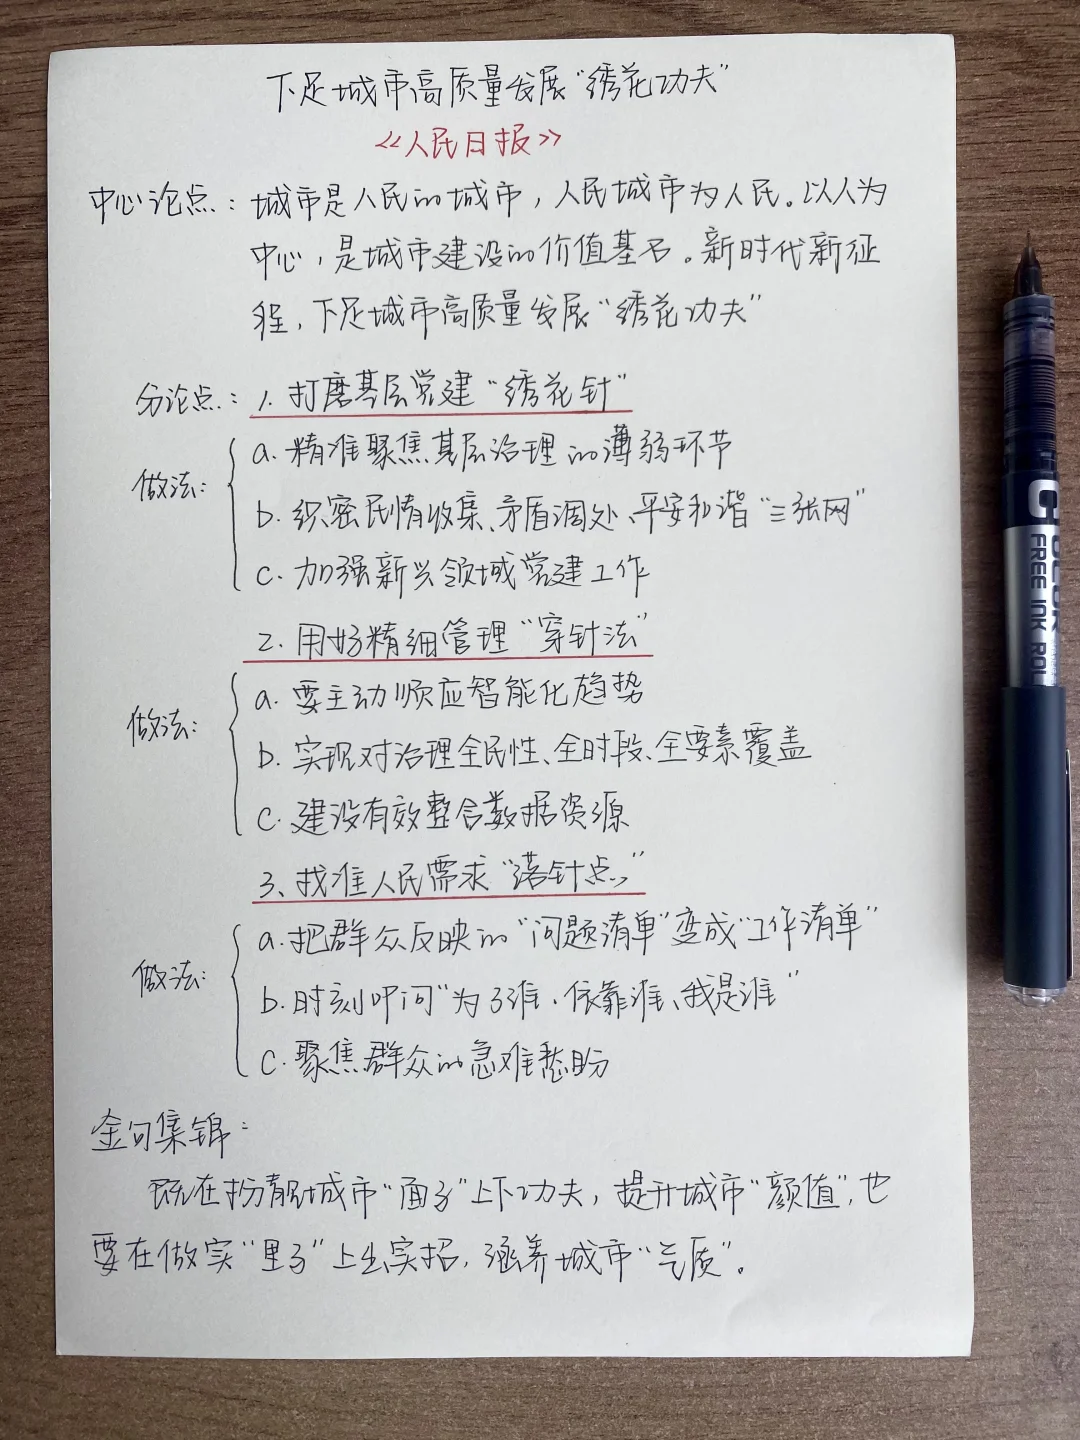 下足城市高质量发展“绣花功夫”
《人民日报》
中心论点：城市是人民的城市，人民城市为人民。以人为
中心，是城市建设的价值基石。新时代新征
程，下足城市高质量发展“绣花功夫”
分论点：1. 打磨基层党建“绣花针”
做法：
a. 精准聚焦基层治理的薄弱环节
b. 织密民情收集、矛盾调处、平安和谐“三张网”
c. 加强新兴领域党建工作
2. 用好精细管理“穿针法”
做法：
a. 要主动顺应智能化趋势
b. 实现对治理全民性、全时段、全要素覆盖
c. 建设有效整合数据资源
3、找准人民需求“落针点”
做法：
a. 把群众反映的“问题清单”变成“工作清单”
b. 时刻叩问“为了谁、依靠谁、我是谁”
c. 聚焦群众的急难愁盼
金句集锦：
既在扮靓城市“面子”上下功夫，提升城市“颜值”，也
要在做实“里子”上出实招，涵养城市“气质”。
FREE INK ROL